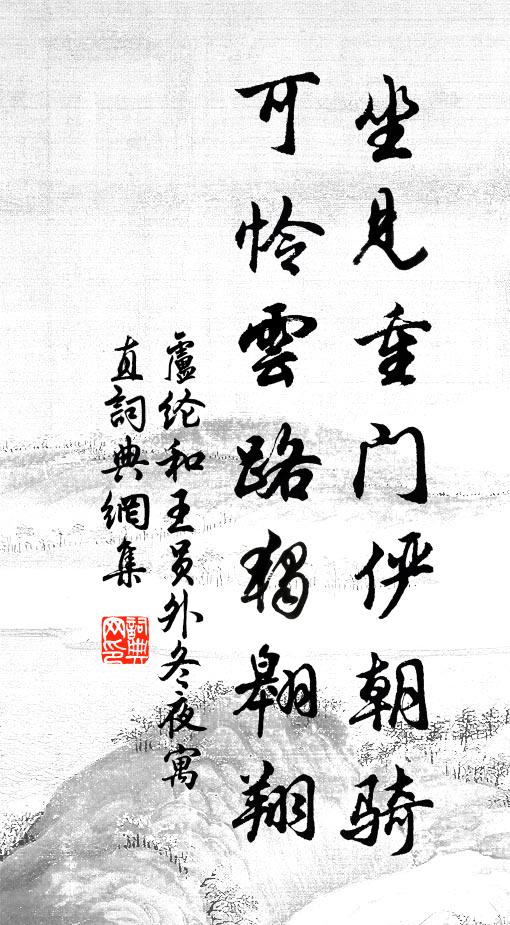 坐見重门俨朝骑
可怜雲路独翱翔
盧纶和王员外冬夜寓
直詞典網集
詞典
网印